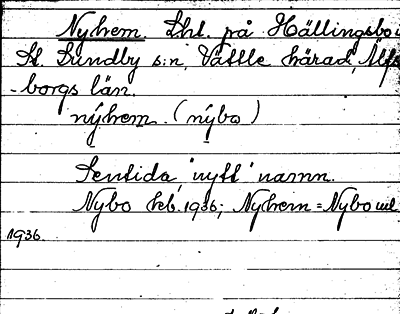 Nyhem. Lht. på Hällingsbo i
St. Lundby s:n, Vättle härad, Älfs
-borgs län.
nýhem. (nýbo)
Sentida, "nytt" namn.
Nybo kb. 1936; Nyhem = Nybo
1936.